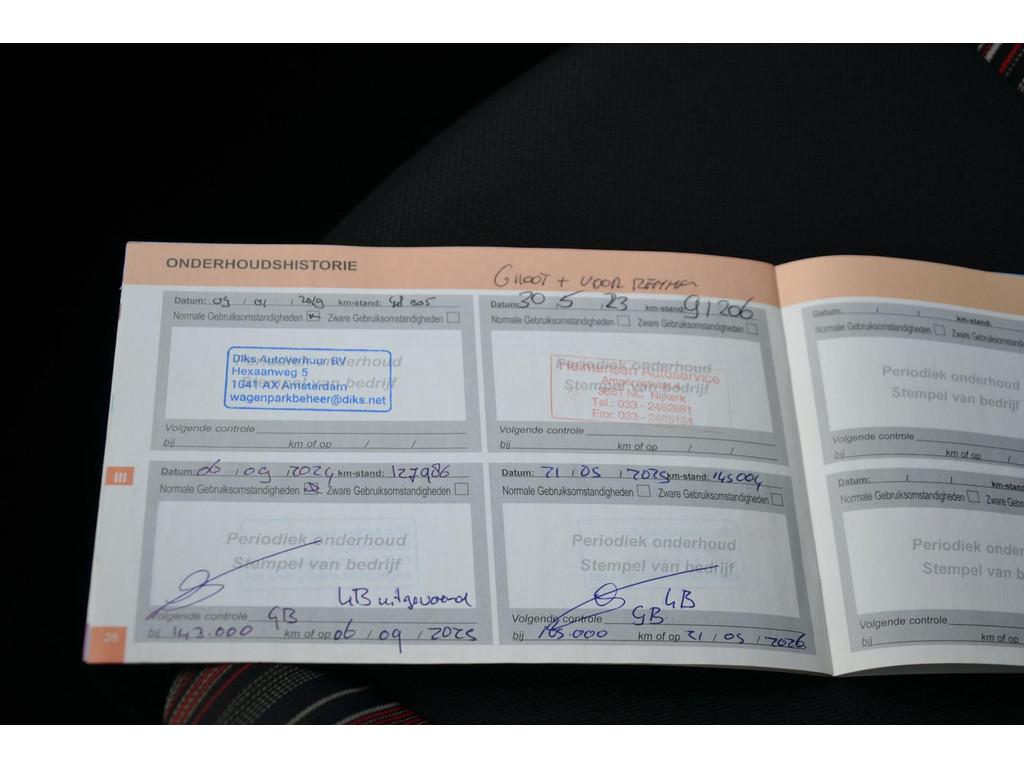 ONDERHOUDSHISTORIE
GROOT + VOOR REMMEN
Datum: 09 / 01 / 2019 km-stand:
Normale Gebruiksomstandigheden Zware Gebruiksomstandigheden
Periodiek onderhoud
Stempel van bedrijf
Diks Autoverhuur BV
Hexaanweg 5
1041 AX Amsterdam
wagenparkbeheer@diks.net
Volgende controle
bij km of op / /
Datum: 30 5 23 km-stand: 91206
Normale Gebruiksomstandigheden Zware Gebruiksomstandigheden
Periodiek onderhoud
Stempel van bedrijf
Autoservice
3861 NC Nijkerk
Tel.: 033 - 2452681
Fax: 033 -
Volgende controle
bij km of op / /
Datum: / / km-stand:
Normale Gebruiksomstandigheden Zware
Periodiek onderhoud
Stempel van bedrijf
Volgende controle
bij km of op /
III
Datum: 06 / 09 / 2024 km-stand: 127986
Normale Gebruiksomstandigheden Zware Gebruiksomstandigheden
Periodiek onderhoud
Stempel van bedrijf
GB uitgevoerd
Volgende controle GB
bij 143.000 km of op 06 / 09 / 2025
Datum: 21 / 05 / 2025 km-stand: 145004
Normale Gebruiksomstandigheden Zware Gebruiksomstandigheden
Periodiek onderhoud
Stempel van bedrijf
GB
Volgende controle GB
bij 165.000 km of op 21 / 05 / 2026
Datum: / / km-stand:
Normale Gebruiksomstandigheden Zware
Periodiek
Stempel van
Volgende controle
bij km of op
26